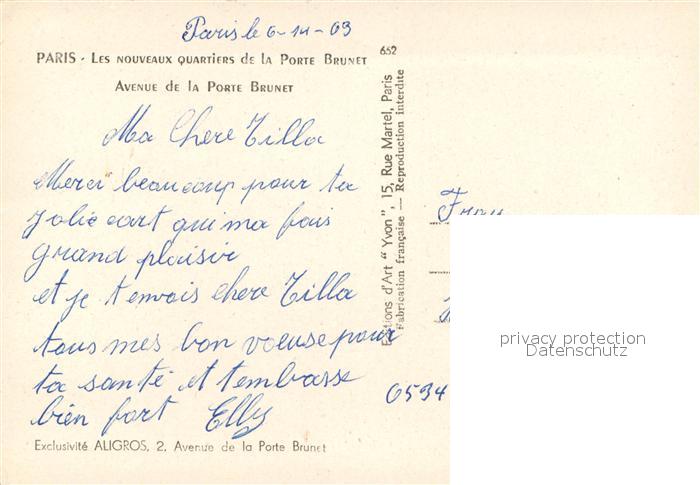 Paris le 6-14-63
PARIS - Les nouveaux quartiers de la Porte Brunet
Avenue de la Porte Brunet
Ma Chere Tilla
Merci beaucoup pour ta
jolie cart qui ma fais
grand plaisir
et je t envois chere Tilla
tous mes bon voeuse pour
ta santé et t'embasse
bien fort Elly
Exclusivité ALIGROS, 2, Avenue de la Porte Brunet
652
Editions d'Art "Yvon", 15, Rue Martel, Paris
Fabrication française — Reproduction interdite
Frau
6534
privacy protection
Datenschutz